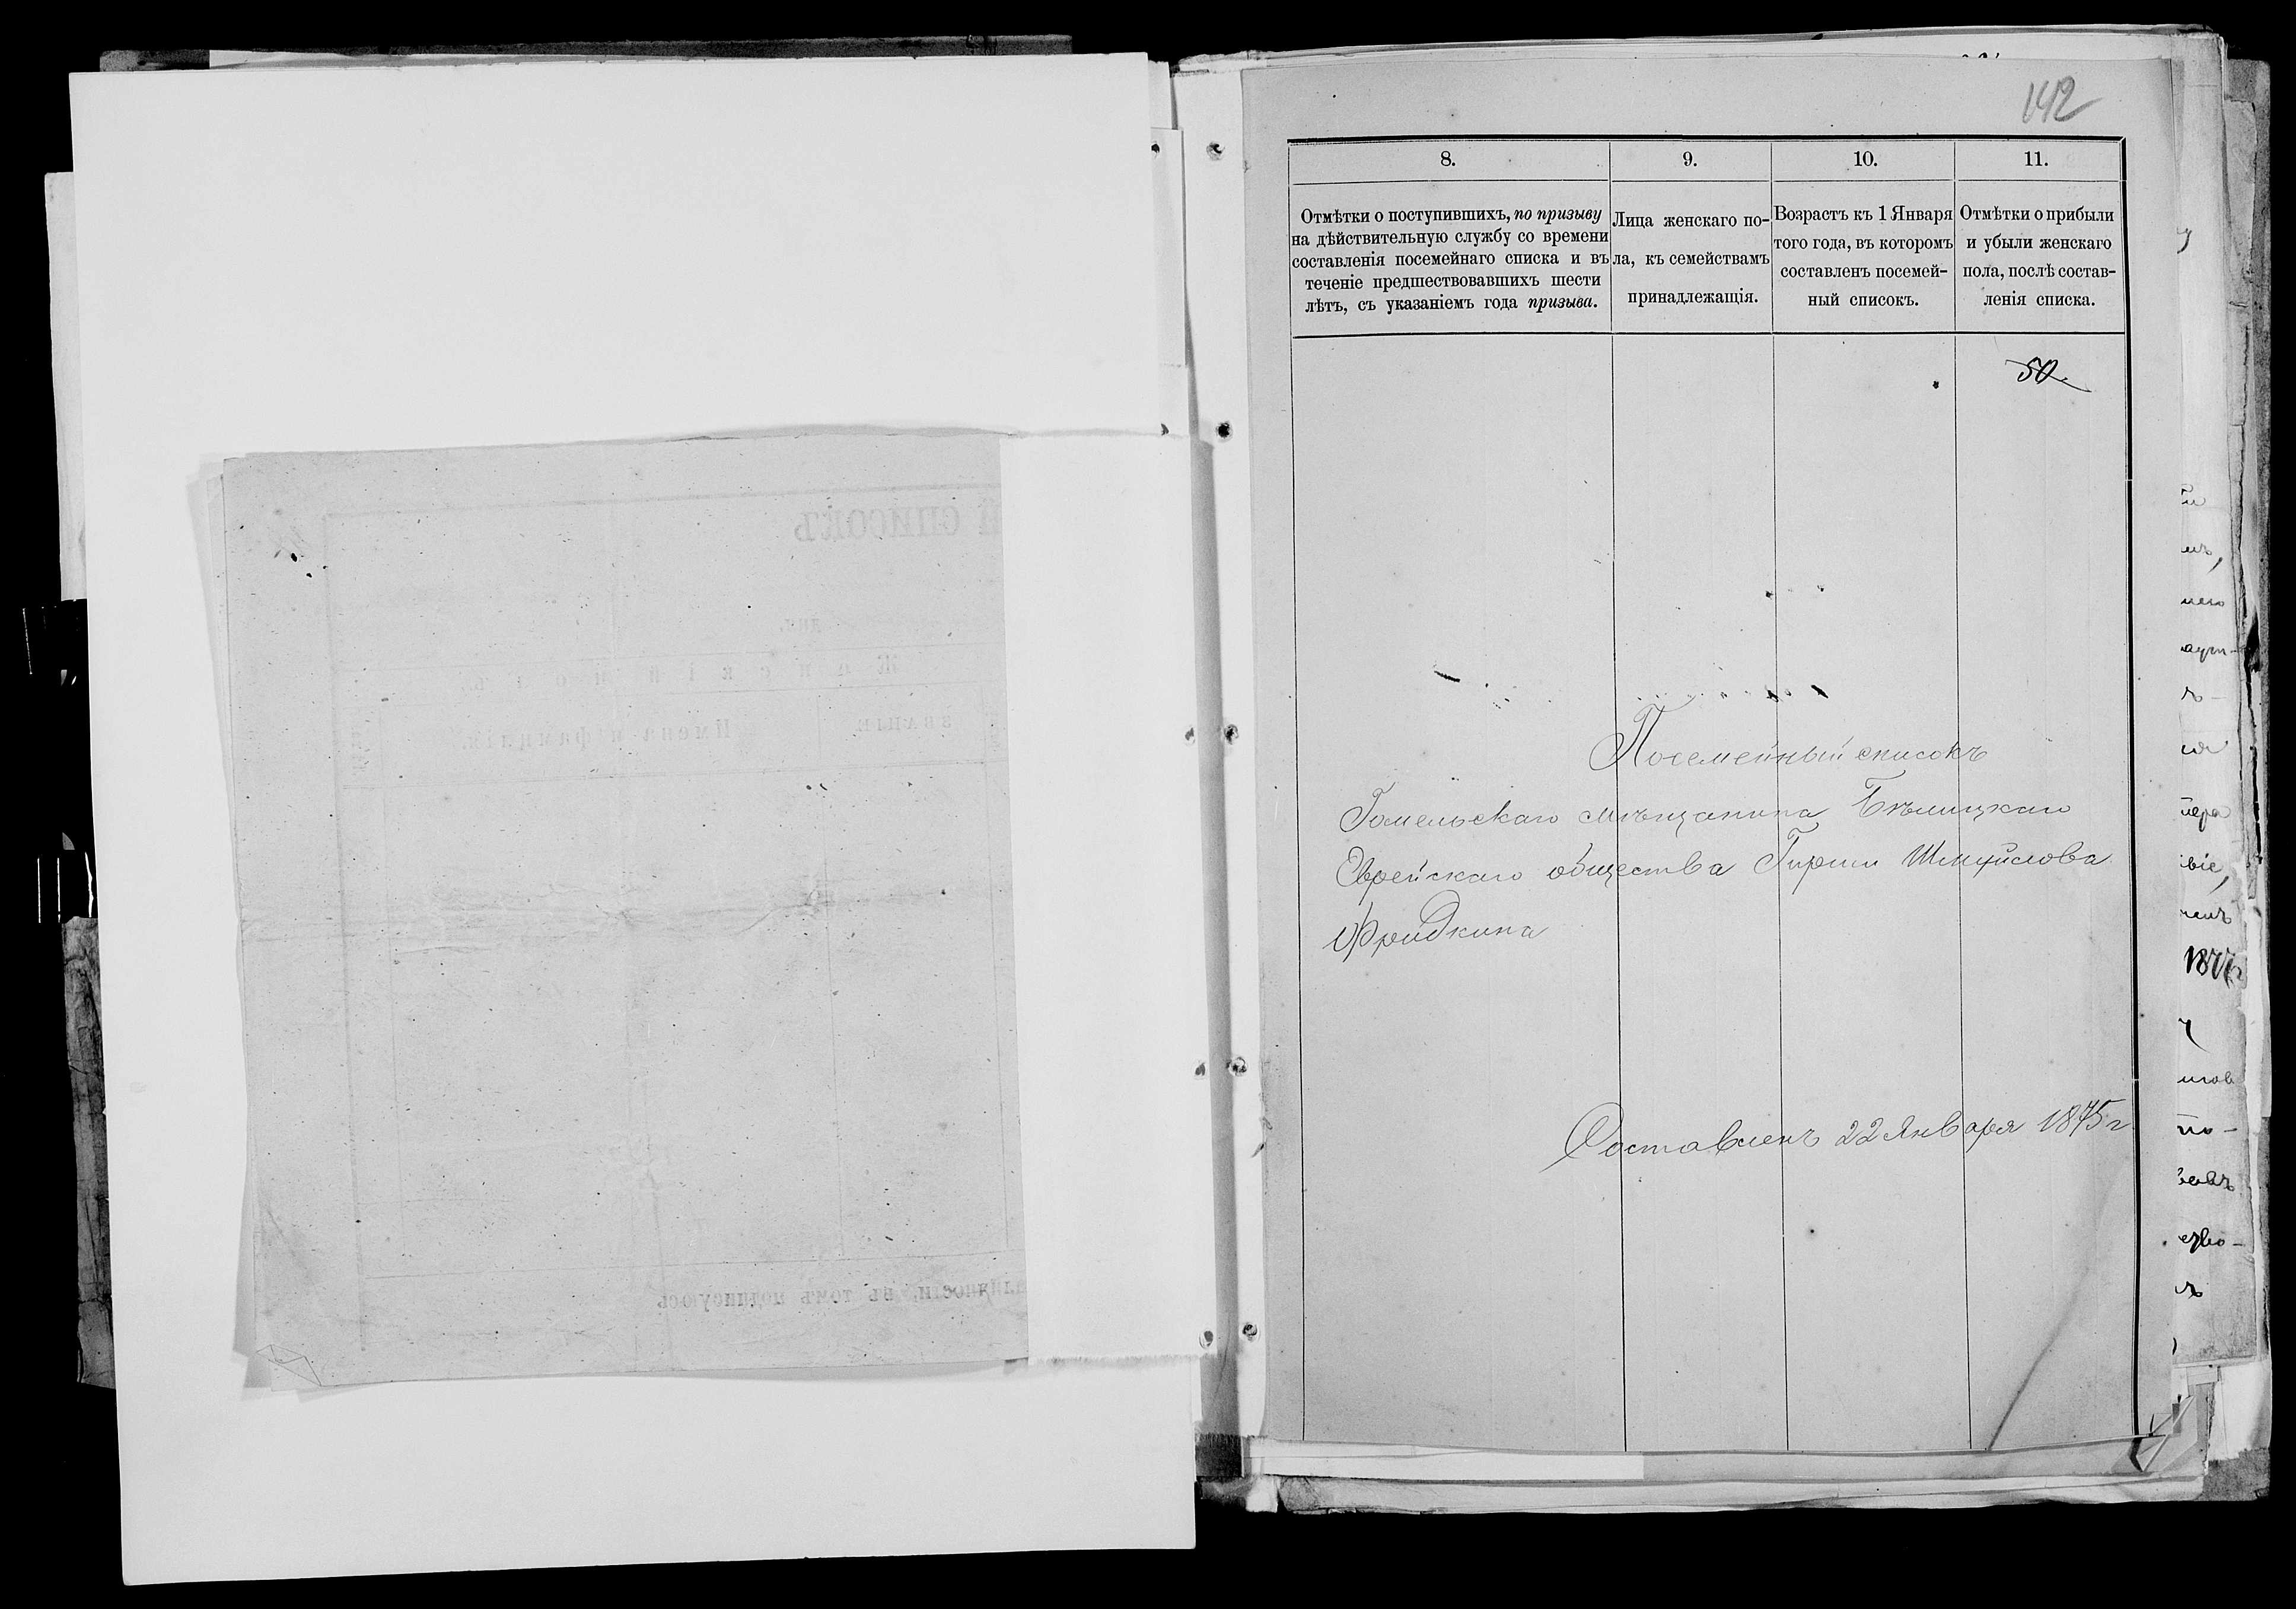 142
8.
9.
10.
11.
Отмѣтки о поступившихъ, по призыву
на дѣйствительную службу со времени
составленія посемейнаго списка и въ
теченіе предшествовавшихъ шести
лѣтъ, съ указаніемъ года призыва.
Лица женскаго по-
ла, къ семействамъ
принадлежащія.
Возрастъ къ 1 Января
того года, въ которомъ
составленъ посемей-
ный списокъ.
Отмѣтки о прибыли
и убыли женскаго
пола, послѣ состав-
ленія списка.
50.
Посемейный списокъ
Гомельскаго мѣщанина Бѣлицкаго
Еврейскаго общества Гирши Шмуйлова
Фридкина
Составленъ 22 Января 1875 г
СПИСОКЪ
Имена и фамиліи.
ЗВАНІЕ.
въ томъ подписуюсь
1877